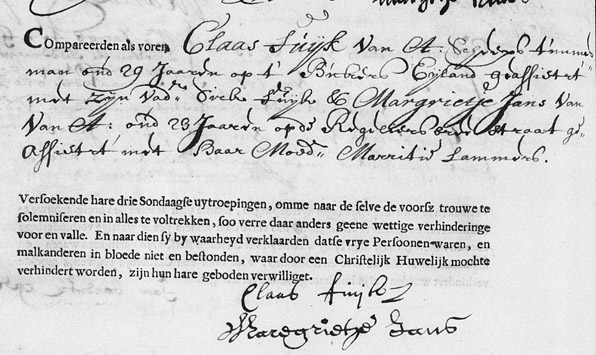 Compareerden als voren Claas Fuijk van A: Scheeps timmer
man oud 29 Jaaren op t' Bickers Eyland geassisteert
met zijn vader Fuijke & Margrietje Jans van
van A: oud 23 Jaaren op de straat ge-
assisteert met haar Moed: Marritie Lammers.
Versoekende hare drie Sondaagse uytroepingen, omme naar de selve de voorsz trouwe te
solemniseren en in alles te voltrekken, soo verre daar anders geene wettige verhinderinge
voor en valle. En naar dien sy by waarheyd verklaarden datse vrye Persoonen waren, en
malkanderen in bloede niet en bestonden, waar door een Christelijk Huwelijk mochte
verhindert worden, zijn hun hare geboden verwilliget.
Claas
Maregrietje Jans